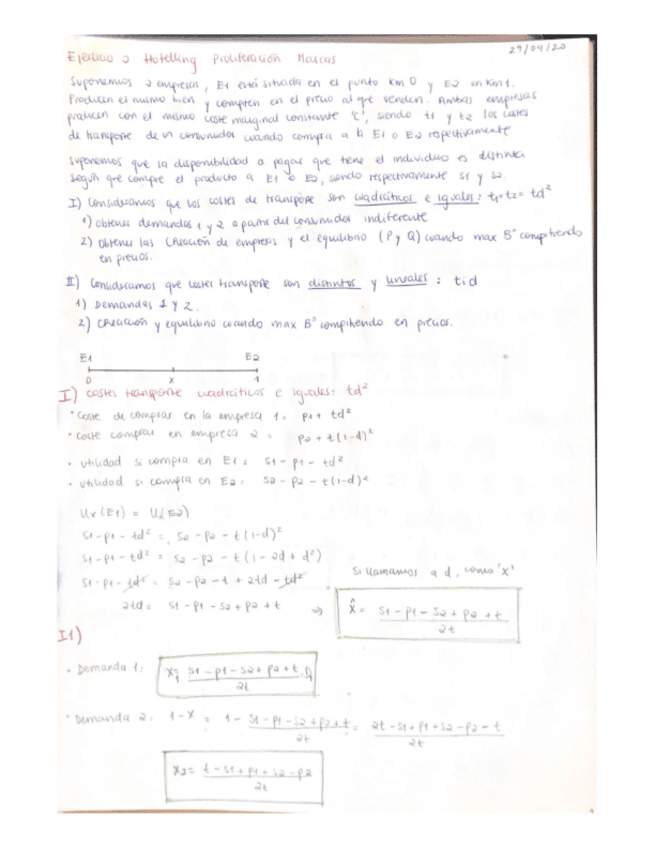 29/04/20
Ejercicio 2 Hotelling Proliferación Marcas
Suponemos 2 empresas, E1 está situada en el punto Km 0 y E2 en Km 1.
Producen el mismo bien y compiten en el precio al que venden. Ambas empresas
producen con el mismo coste marginal constante 'c', siendo t1 y t2 los costes
de transporte de un consumidor cuando compra a la E1 o E2 respectivamente
Suponemos que la disponibilidad a pagar que tiene el individuo es distinta
según que compre el producto a E1 o E2, siendo respectivamente s1 y s2.
I) Consideramos que los costes de transporte son cuadráticos e iguales: t1=t2= td²
1) obtener demandas 1 y 2 a partir del consumidor indiferente
2) obtener las Creación de empresas y el equilibrio (P y Q) cuando max Bº compitiendo
en precios.
II) Consideramos que costes transporte son distintos y lineales : tid
1) Demandas 1 y 2.
2) Creación y equilibrio cuando max Bº compitiendo en precios.
E1 E2
0 x 1
I) costes transporte cuadráticos e iguales: td²
· Coste de comprar en la empresa 1 = p1 + td²
· coste comprar en empresa 2 = p2 + t(1-d)²
· utilidad si compra en E1 = s1 - p1 - td²
· utilidad si compra en E2 = s2 - p2 - t(1-d)²
Ux (E1) = Ux(E2)
s1 - p1 - td² = s2 - p2 - t(1-d)²
s1 - p1 - td² = s2 - p2 - t (1 - 2d + d²)
s1 - p1 - td² = s2 - p2 - t + 2td - td²
Si llamamos a d, como 'x'
2td = s1 - p1 - s2 + p2 + t ⇒ x̂ = s1 - p1 - s2 + p2 + t / 2t
I1)
· Demanda 1: x1 = s1 - p1 - s2 + p2 + t / 2t
· Demanda 2: 1-x = 1 - s1 - p1 - s2 + p2 + t / 2t = 2t - s1 + p1 + s2 - p2 - t / 2t
x2 = t - s1 + p1 + s2 - p2 / 2t